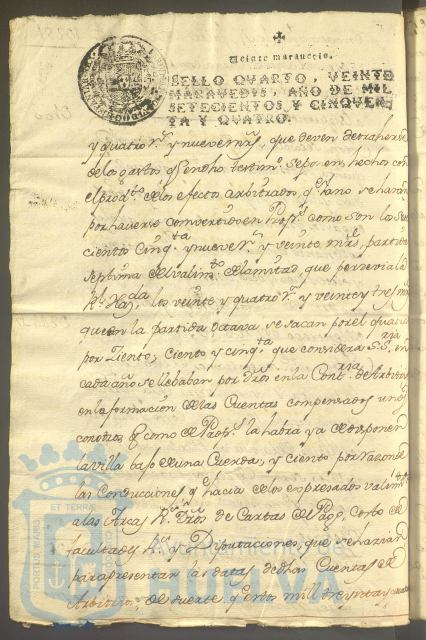 Veinte maravedis.
SELLO QVARTO, VEINTE
MARAVEDIS, AÑO DE MIL
SETECIENTOS Y CINQVEN-
TA Y QVATRO.
y quatro rs y nueve mrs, que deven detraherse
de los gastos qe en dho testimo se ponen hechos con
el prodto de los efectos arbitrados qe
por haverse convertido en Props como son los
cientos Cinqta y nueve rs y veinte mrs, partida
septima del valimto de la mitad, que percevia la
Rl Hazda, los veinte y quatro rs y veinte y tres mrs
que en la partida octava se sacan por el quatro
por Ziento, ciento y cinqta que considera S.Sria en
cada año se llebaban por dros en la Contria de Arbitros
en la formacion de las Cuentas compensados unos
con otros qe como de Props la habrá ya de disponer
la villa bajo de una Cuerda, y ciento por razon de
las Conducciones qe hacia de los expresados valimtos
a las Arcas Rs Dros de Cartas de Pago, costo de
facultades Rs y Diputaciones, que se harian
para presentar las datas de dhas Cuentas de
Arbitrios, de suerte qe estos mill treynta y quatro
PORTUS MARIS
ET TERRAE
Ayuntamiento de
HUELVA